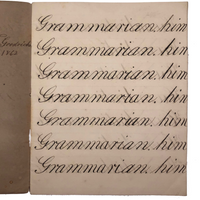 Grammarian, him
Grammarian, him
Grammarian, him
Grammarian, him
Grammarian, him
Grammarian, him
Grammarian, him